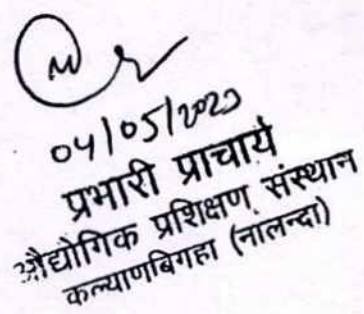 04/05/2023
प्रभारी प्राचार्य
औद्योगिक प्रशिक्षण संस्थान
कल्याणबिगहा (नालन्दा)